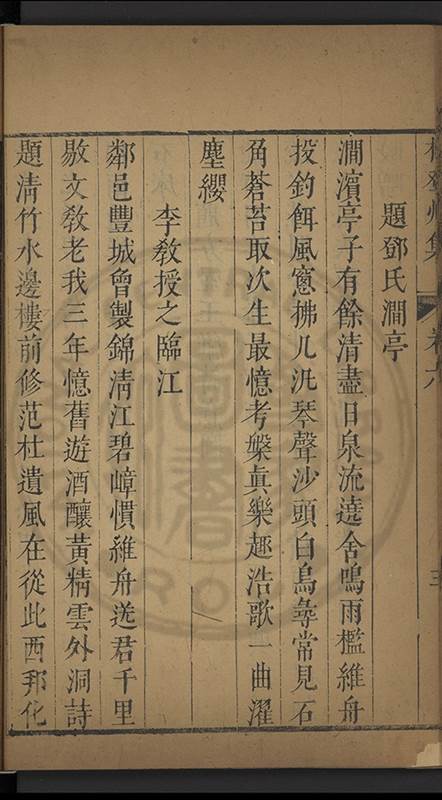 卷六
題鄧氏澗亭
澗濱亭子有餘清盡日泉流遶舍鳴雨檻維舟
投釣餌風窻拂几汎琴聲沙頭白鳥尋常見石
角蒼苔取次生最憶考槃眞樂趣浩歌一曲濯
塵纓
李敎授之臨江
鄰邑豐城曾製錦淸江碧嶂慣維舟送君千里
敭文敎老我三年憶舊遊酒釀黃精雲外洞詩
題淸竹水邊樓前修范杜遺風在從此西邦化